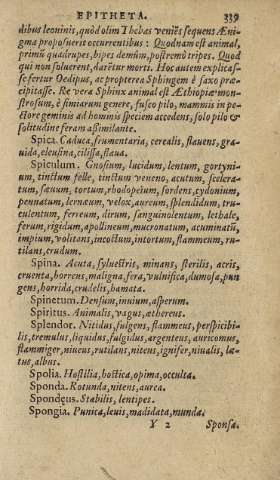 EPITHETA. 339
dibus leoninis, quòd olim Thebas veniẽs sequens Æni-
gma proposuerit occurrentibus: Quodnam est animal,
primũ quadrupes, bipes demùm, postremò tripes. Quod
qui non soluerent, darẽtur morti. Hoc autem explicas-
se fertur Oedipus, ac propterea Sphingem è saxo præ-
cipitasse. Re vera Sphinx animal est Æthiopiæ mon-
strosum, è simiarum genere, fusco pilo, mammis in pe-
ctore geminis ad hominis speciem accedens, solo pilo &
solitudine feram assimilante.
Spica. Caduca, frumentaria, cerealis, flauens, gra-
uida, eleusina, cilissa, flaua.
Spiculum. Gnosium, lucidum, lentum, gortyni-
um, tinctum felle, tinctum veneno, acutum, scelera-
tum, sæuum, tortum, rhodopeium, sordens, cydonium,
pennatum, lernæum, velox, aureum, splendidum, tru-
culentum, ferreum, dirum, sanguinolentum, lethale,
ferum, rigidum, apollineum, mucronatum, acuminatũ,
impium, volitans, incoctum, intortum, flammeum, ru-
tilans, crudum.
Spina. Acuta, syluestris, minans, sterilis, acris,
cruenta, horrens, maligna, fera, vulnifica, dumosa, pun
gens, horrida, crudelis, hamata.
Spinetum. Densum, inuium, asperum.
Spiritus. Animalis, vagus, æthereus.
Splendor. Nitidus, fulgens, flammeus, perspicibi-
lis, tremulus, liquidus, fulgidus, argenteus, auricomus,
flammiger, niueus, rutilans, nitens, ignifer, niualis, læ-
tus, albus.
Spolia. Hostilia, hostica, opima, occulta.
Sponda. Rotunda, nitens, aurea.
Spondęus. Stabilis, lentipes.
Spongia. Punica, leuis, madidata, munda.
Y 2 Sponsa.